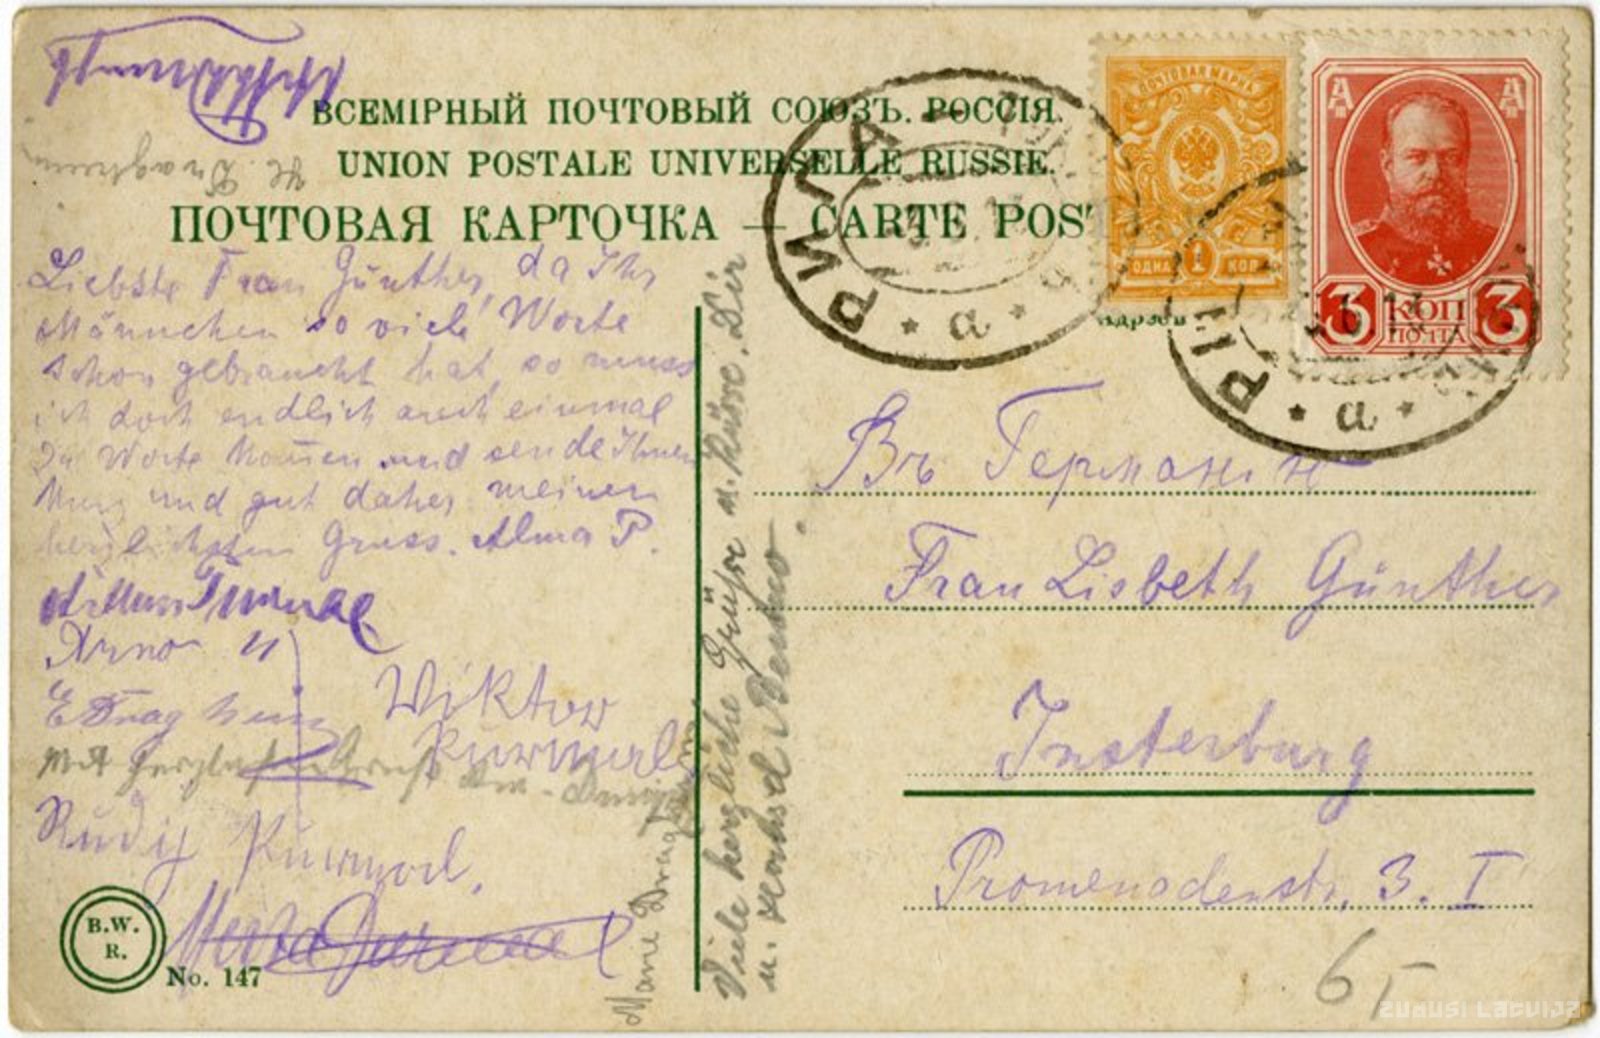 ВСЕМІРНЫЙ ПОЧТОВЫЙ СОЮЗЪ. РОССІЯ.
UNION POSTALE UNIVERSELLE RUSSIE.
ПОЧТОВАЯ КАРТОЧКА — CARTE POST
ПОЧТОВАЯ МАРКА
ОДНА 1 КОП
3 КОП 3
ПОЧТА
РИГА
а
РИ
а
Liebste Frau Günther, da Ihr
Männchen so viele Worte
schon gebraucht hat, so muss
ich doch endlich auch einmal
zu Worte kommen und sende Ihnen
kurz und gut daher meinen
herzlichsten Gruss. Alma P.
Arno
E Draghein
Viktor
Purmal
Rudij Purmal.
Marie
Viele herzliche Grüße u. Küsse, Dir
u.
Въ Германія
Frau Lisbeth Günther
Insterburg
Promenadenstr. 3. I
B.W.
R.
No. 147
6
ZUDUSI LATVIJA